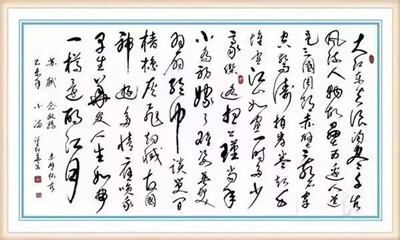 大江东去浪淘尽千古
风流人物故垒西边人道
是三国周郎赤壁乱石穿
空惊涛拍岸卷起千
堆雪江山如画一时多少
豪杰遥想公瑾当年
小乔初嫁了雄姿英发
羽扇纶巾谈笑间
樯橹灰飞烟灭故国
神游多情应笑我
早生华发人生如梦
一樽还酹江月
苏轼 念奴娇 赤壁怀古
乙未年